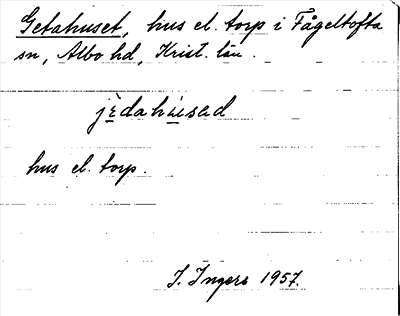 Getahuset, hus el. torp i Fågeltofta
sn, Albo hd, Krist. län.
jèdahúsad
hus el. torp.
I. Ingers 1957.